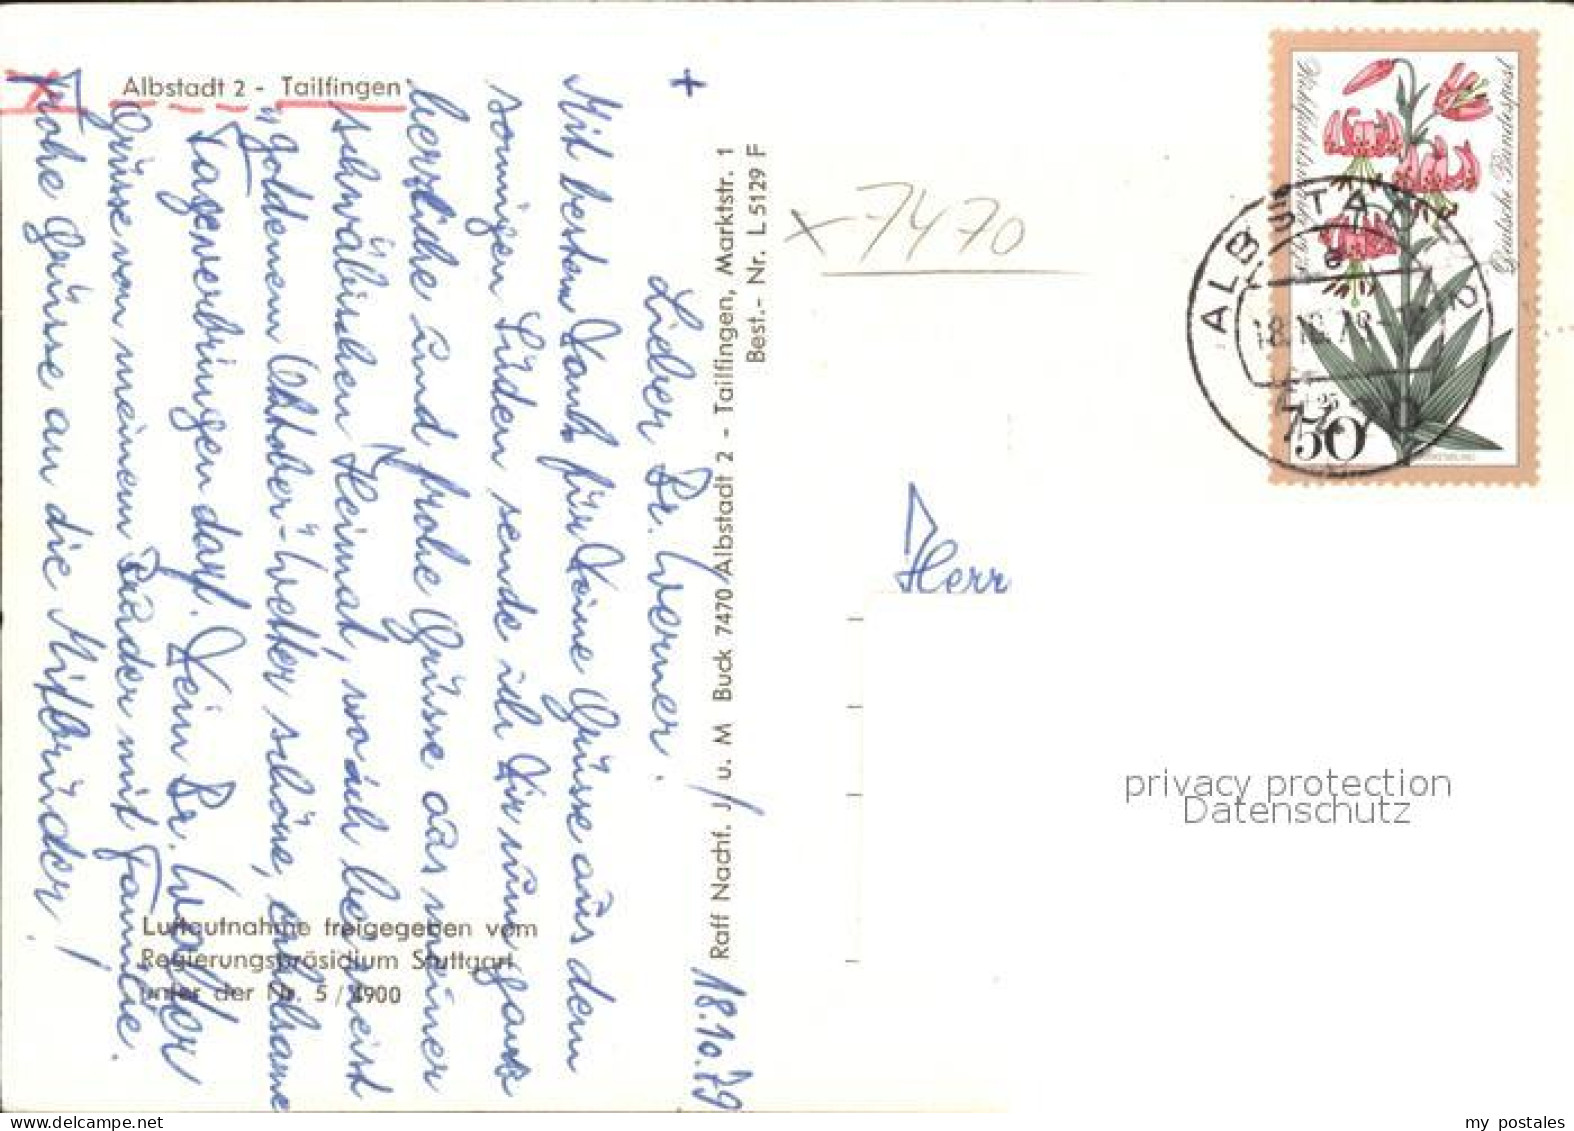 Albstadt 2 - Tailfingen
+
18.10.79
Lieber Br. Werner.
Mit bestem Dank für Deine Grüsse aus dem
sonnigen Süden sende ich Dir nun ganz
herzliche und frohe Grüsse aus meiner
schwäbischen Heimat, wo ich bei meist
"goldenem Oktober"-Wetter schöne, erholsame
Tage verbringen darf. Dein Br. Walter
Grüsse von meinem Bruder mit Familie.
Frohe Grüsse an die Mitbrüder!
Luftaufnahme freigegeben vom
Regierungspräsidium Stuttgart
unter der Nr. 5/4900
Raff Nachf. J. u. M Buck 7470 Albstadt 2 - Tailfingen, Marktstr. 1
Best.- Nr. L 5129 F
x 7470
Herr
Wohlfahrtsmarke
Deutsche Bundespost
50
ALBSTADT 2
privacy protection
Datenschutz
my postales